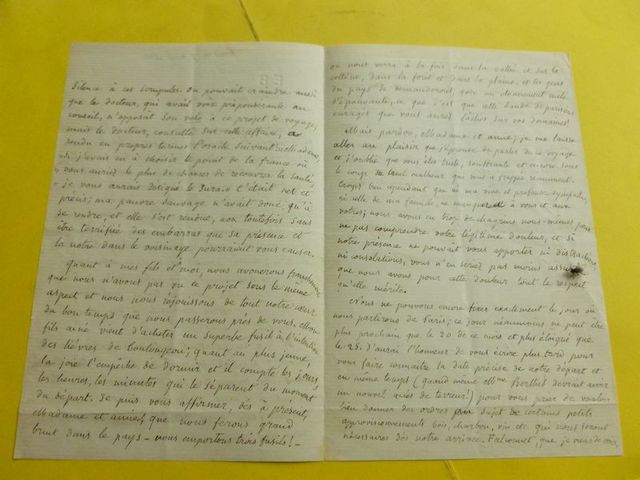 silence à ces scrupules. On pouvait craindre aussi
que le docteur, qui avait voix prépondérante au
conseil, n'opposât son veto à ce projet de voyage,
mais le docteur, consulté sur cette affaire, a
rendu en propres termes l'oracle suivant: « Madame,
« si j'avais eu à choisir le point de la France où
vous auriez le plus de chances de recouvrer la santé,
« je vous aurais désigné le Jura. » C'était net et
précis; ma pauvre sauvage n'avait donc qu'à
se rendre, et elle s'est rendue, non toutefois sans
être terrifiée des embarras que sa présence et
la nôtre dans le voisinage pourraient vous causer.
Quant à mes fils et moi, nous avouerons franchement
que nous n'avons pas vu ce projet sous le même
aspect et nous nous réjouissons de tout notre cœur
du bon temps que nous passerons près de vous. Mon
fils aîné vient d'acheter un superbe fusil à l'intention
des lièvres de ; quant au plus jeune,
la joie l'empêche de dormir et il compte les jours,
les heures, les minutes qui le séparent du moment
du départ. Je puis vous affirmer, dès à présent,
Madame et amie, que nous ferons grand
bruit dans le pays – nous emportons trois fusils! –
on nous verra à la fois dans la vallée et sur la
colline, dans la forêt et dans la plaine, et les gens
du pays se demanderont, avec un étonnement mêlé
d'épouvante, ce que c'est que cette bande de parisiens
enragés que vous aurez lâchés sur vos domaines.
Mais pardon, Madame et amie; je me laisse
aller au plaisir que j'éprouve de parler de ce voyage
et j'oublie que vous êtes triste, souffrante et encore sous
le coup du malheur qui vous a frappée récemment.
Croyez bien cependant que ni ma vive et profonde sympathie,
ni celle de ma famille, ne manquent à vous et aux
vôtres; nous avons eu trop de chagrins nous-mêmes pour
ne pas comprendre votre légitime douleur, et si
notre présence ne pouvait vous apporter ni distractions,
ni consolations, vous n'en seriez pas moins assurée
que nous avons pour cette douleur tout le respect
qu'elle mérite.
Nous ne pouvons encore fixer exactement le jour où
nous partirons de Paris; ce jour néanmoins ne peut être
plus prochain que le 20 de ce mois et plus éloigné que
le 25. J'aurai l'honneur de vous écrire plus tard pour
vous faire connaître la date précise de notre départ et
en même temps (quand même Mme Berthet devrait avoir
un nouvel accès de terreur!) pour vous prier de vouloir
bien donner des ordres au sujet de certains petits
approvisionnements bois, charbon, vin etc. qui nous seront
nécessaires dès notre arrivée. , que je viens de voir,